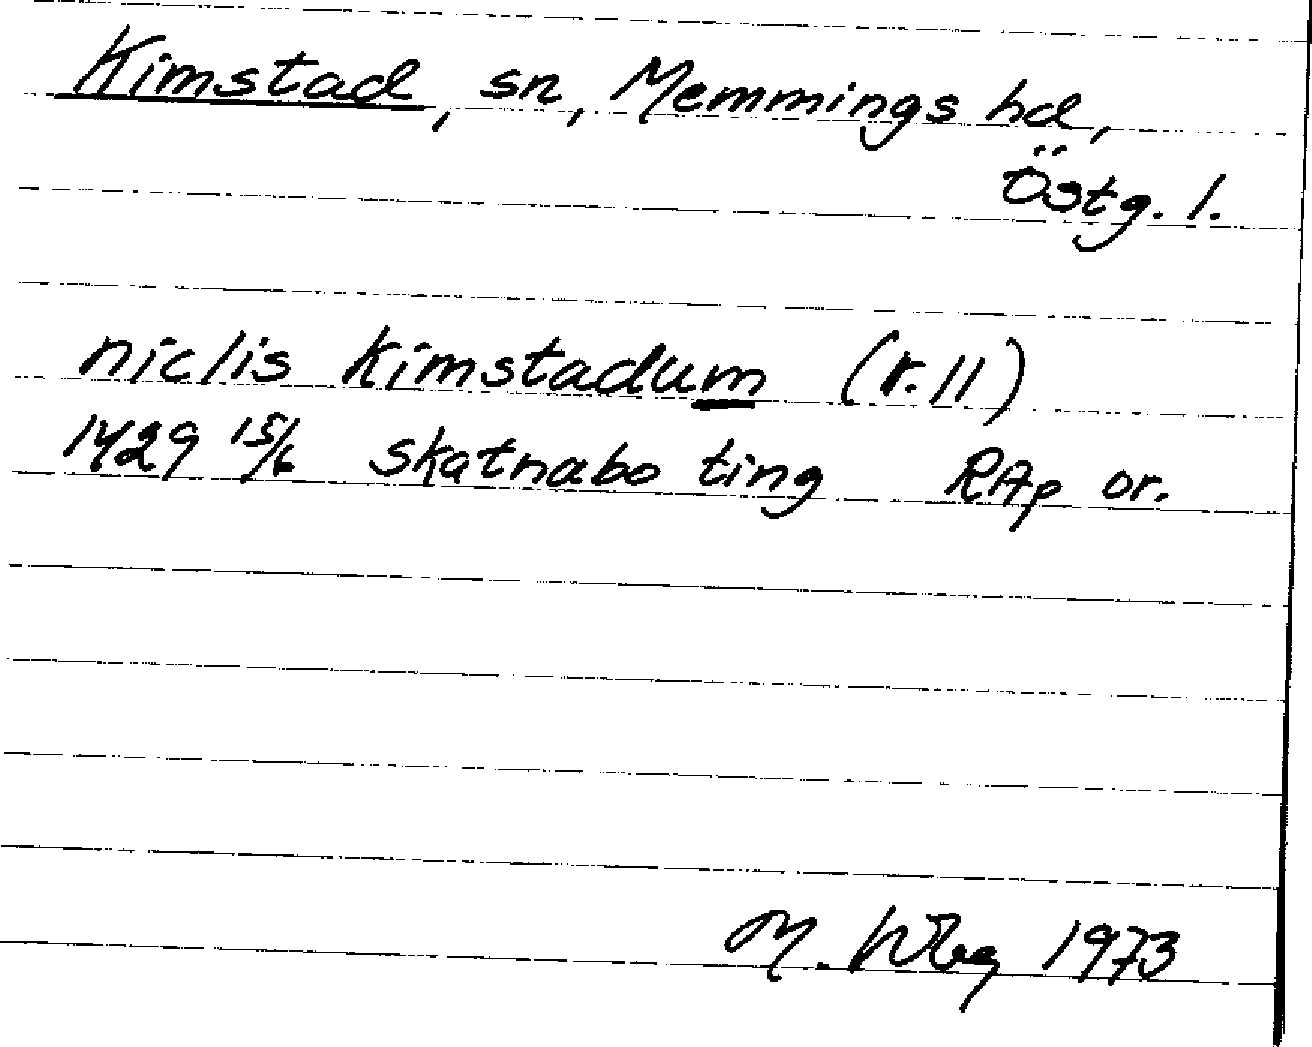 Kimstad, sn, Memmings hd,
Östg. l.
niclis kimstadum (r. 11)
1429 15/6 skatnabo ting RAp or.
M. Wbg 1973